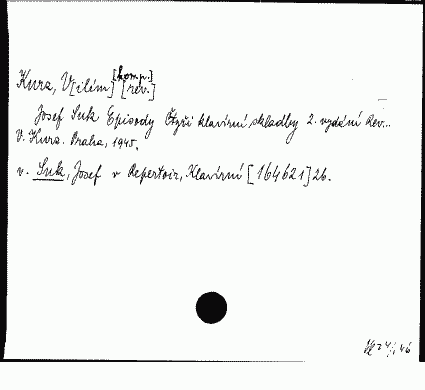 Kurz, V[ilém] [komp.] [rev.]
Josef Suk Episody Čtyři klavírní skladby 2. vydání Rev...
V. Kurz. Praha, 1945.
v. Suk, Josef v Repertoir, Klavírní [164621] 26.